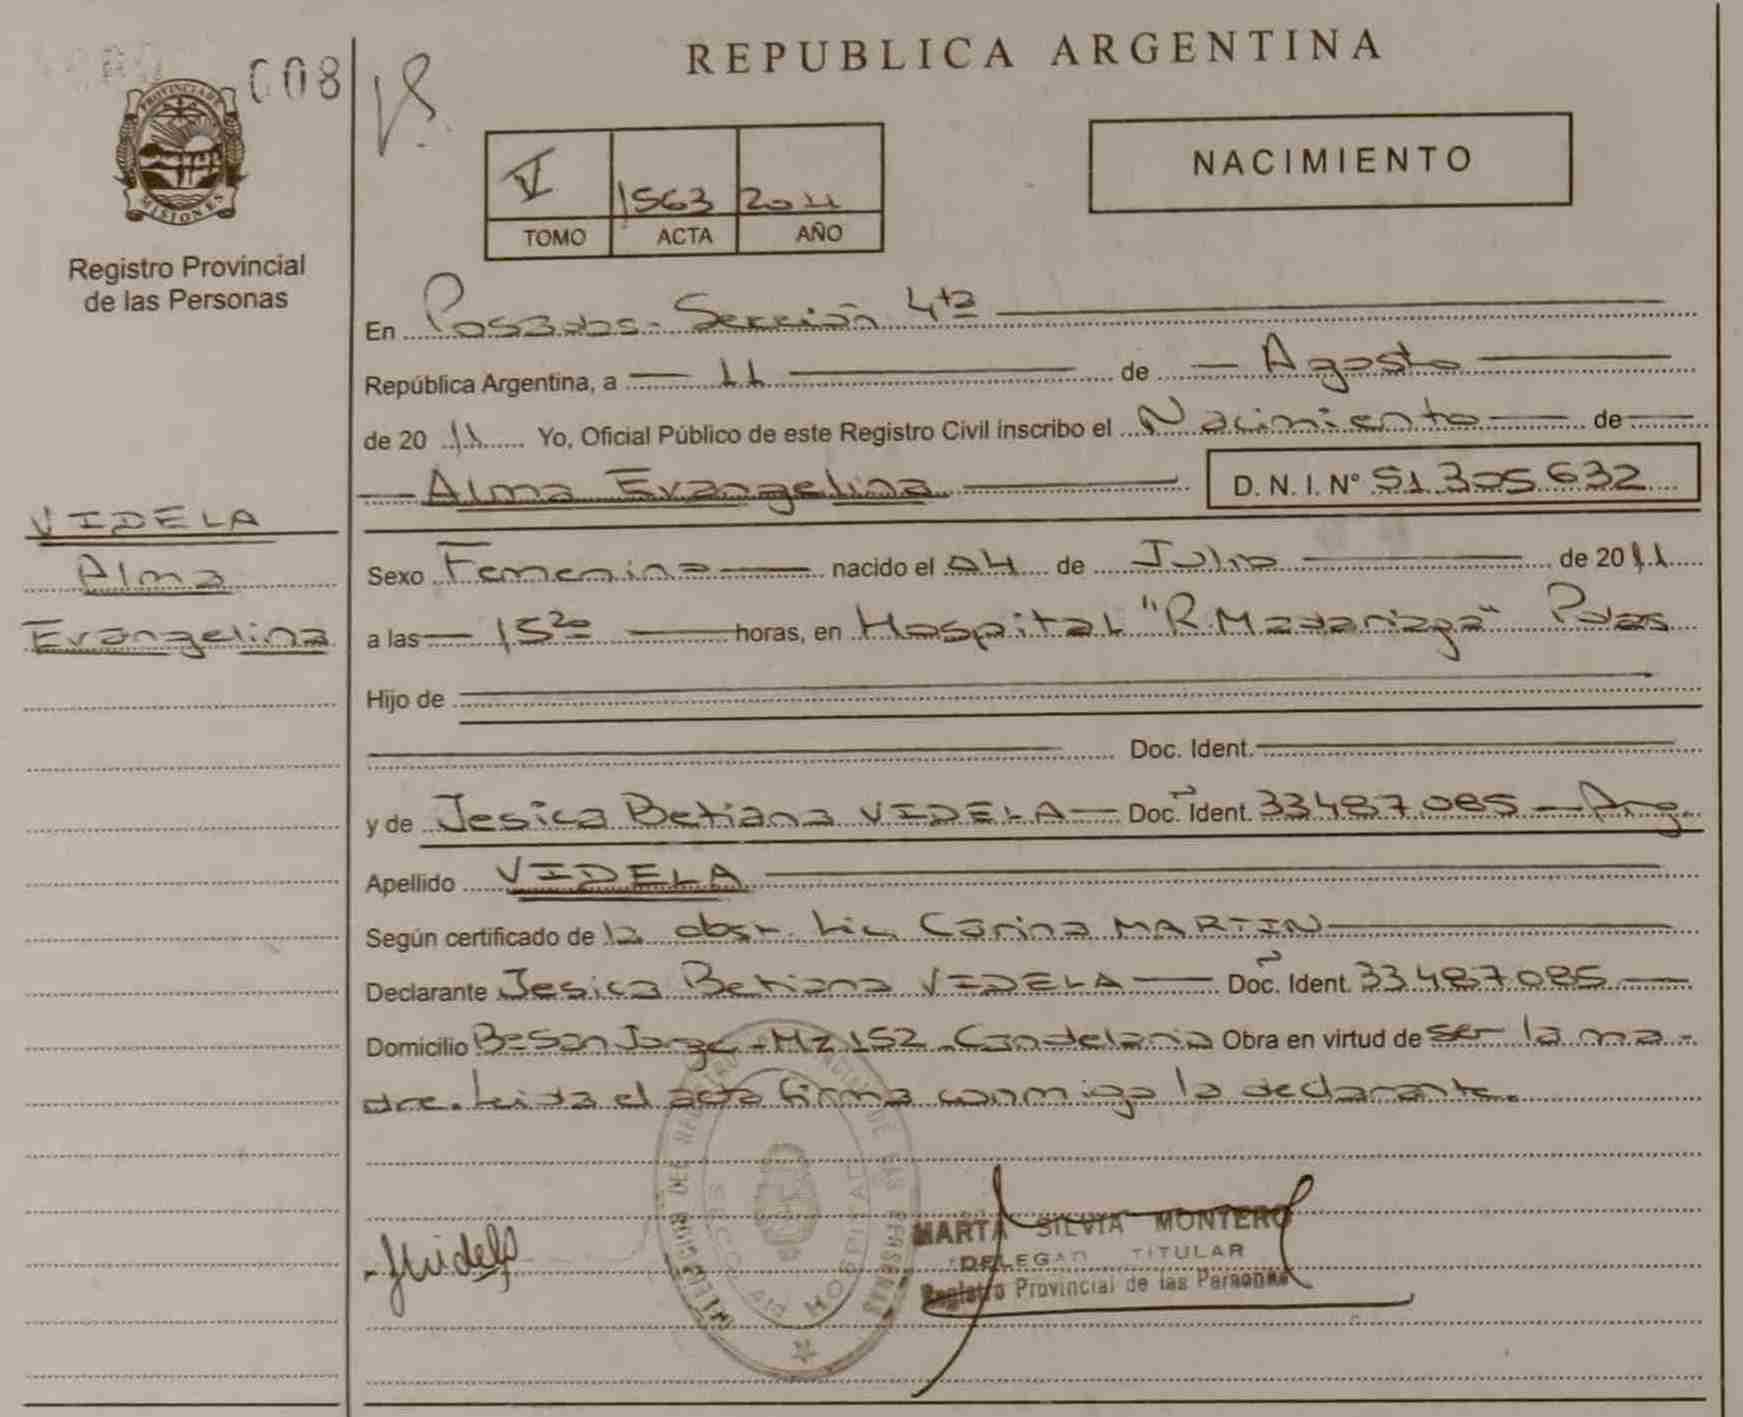 008
REPUBLICA ARGENTINA
PROVINCIA DE MISIONES
Registro Provincial
de las Personas
V 1563 2011
TOMO ACTA AÑO
NACIMIENTO
En Posadas - Sección 4ta
República Argentina, a 11 de Agosto
de 2011 Yo, Oficial Público de este Registro Civil inscribo el Nacimiento de
Alma Evangelina D. N. I. Nº 51.305.632
VIDELA
Alma
Evangelina
Sexo Femenino nacido el 04 de Julio de 2011
a las 15 20 horas, en Hospital "R. Madariaga" Pdas
Hijo de
Doc. Ident.
y de Jesica Betiana VIDELA Doc. Ident. 33.487.085 - Arg.
Apellido VIDELA
Según certificado de la obst. Lic. Carina MARTIN
Declarante Jesica Betiana VIDELA Doc. Ident. 33.487.085
Domicilio Bº San Jorge - Mz 152 - Candelaria Obra en virtud de ser la ma-
dre. Leída el acta firma conmigo la declarante.
JVidela
MARTA SILVIA MONTERO
DELEGAD TITULAR
Registro Provincial de las Personas
HOSPITAL